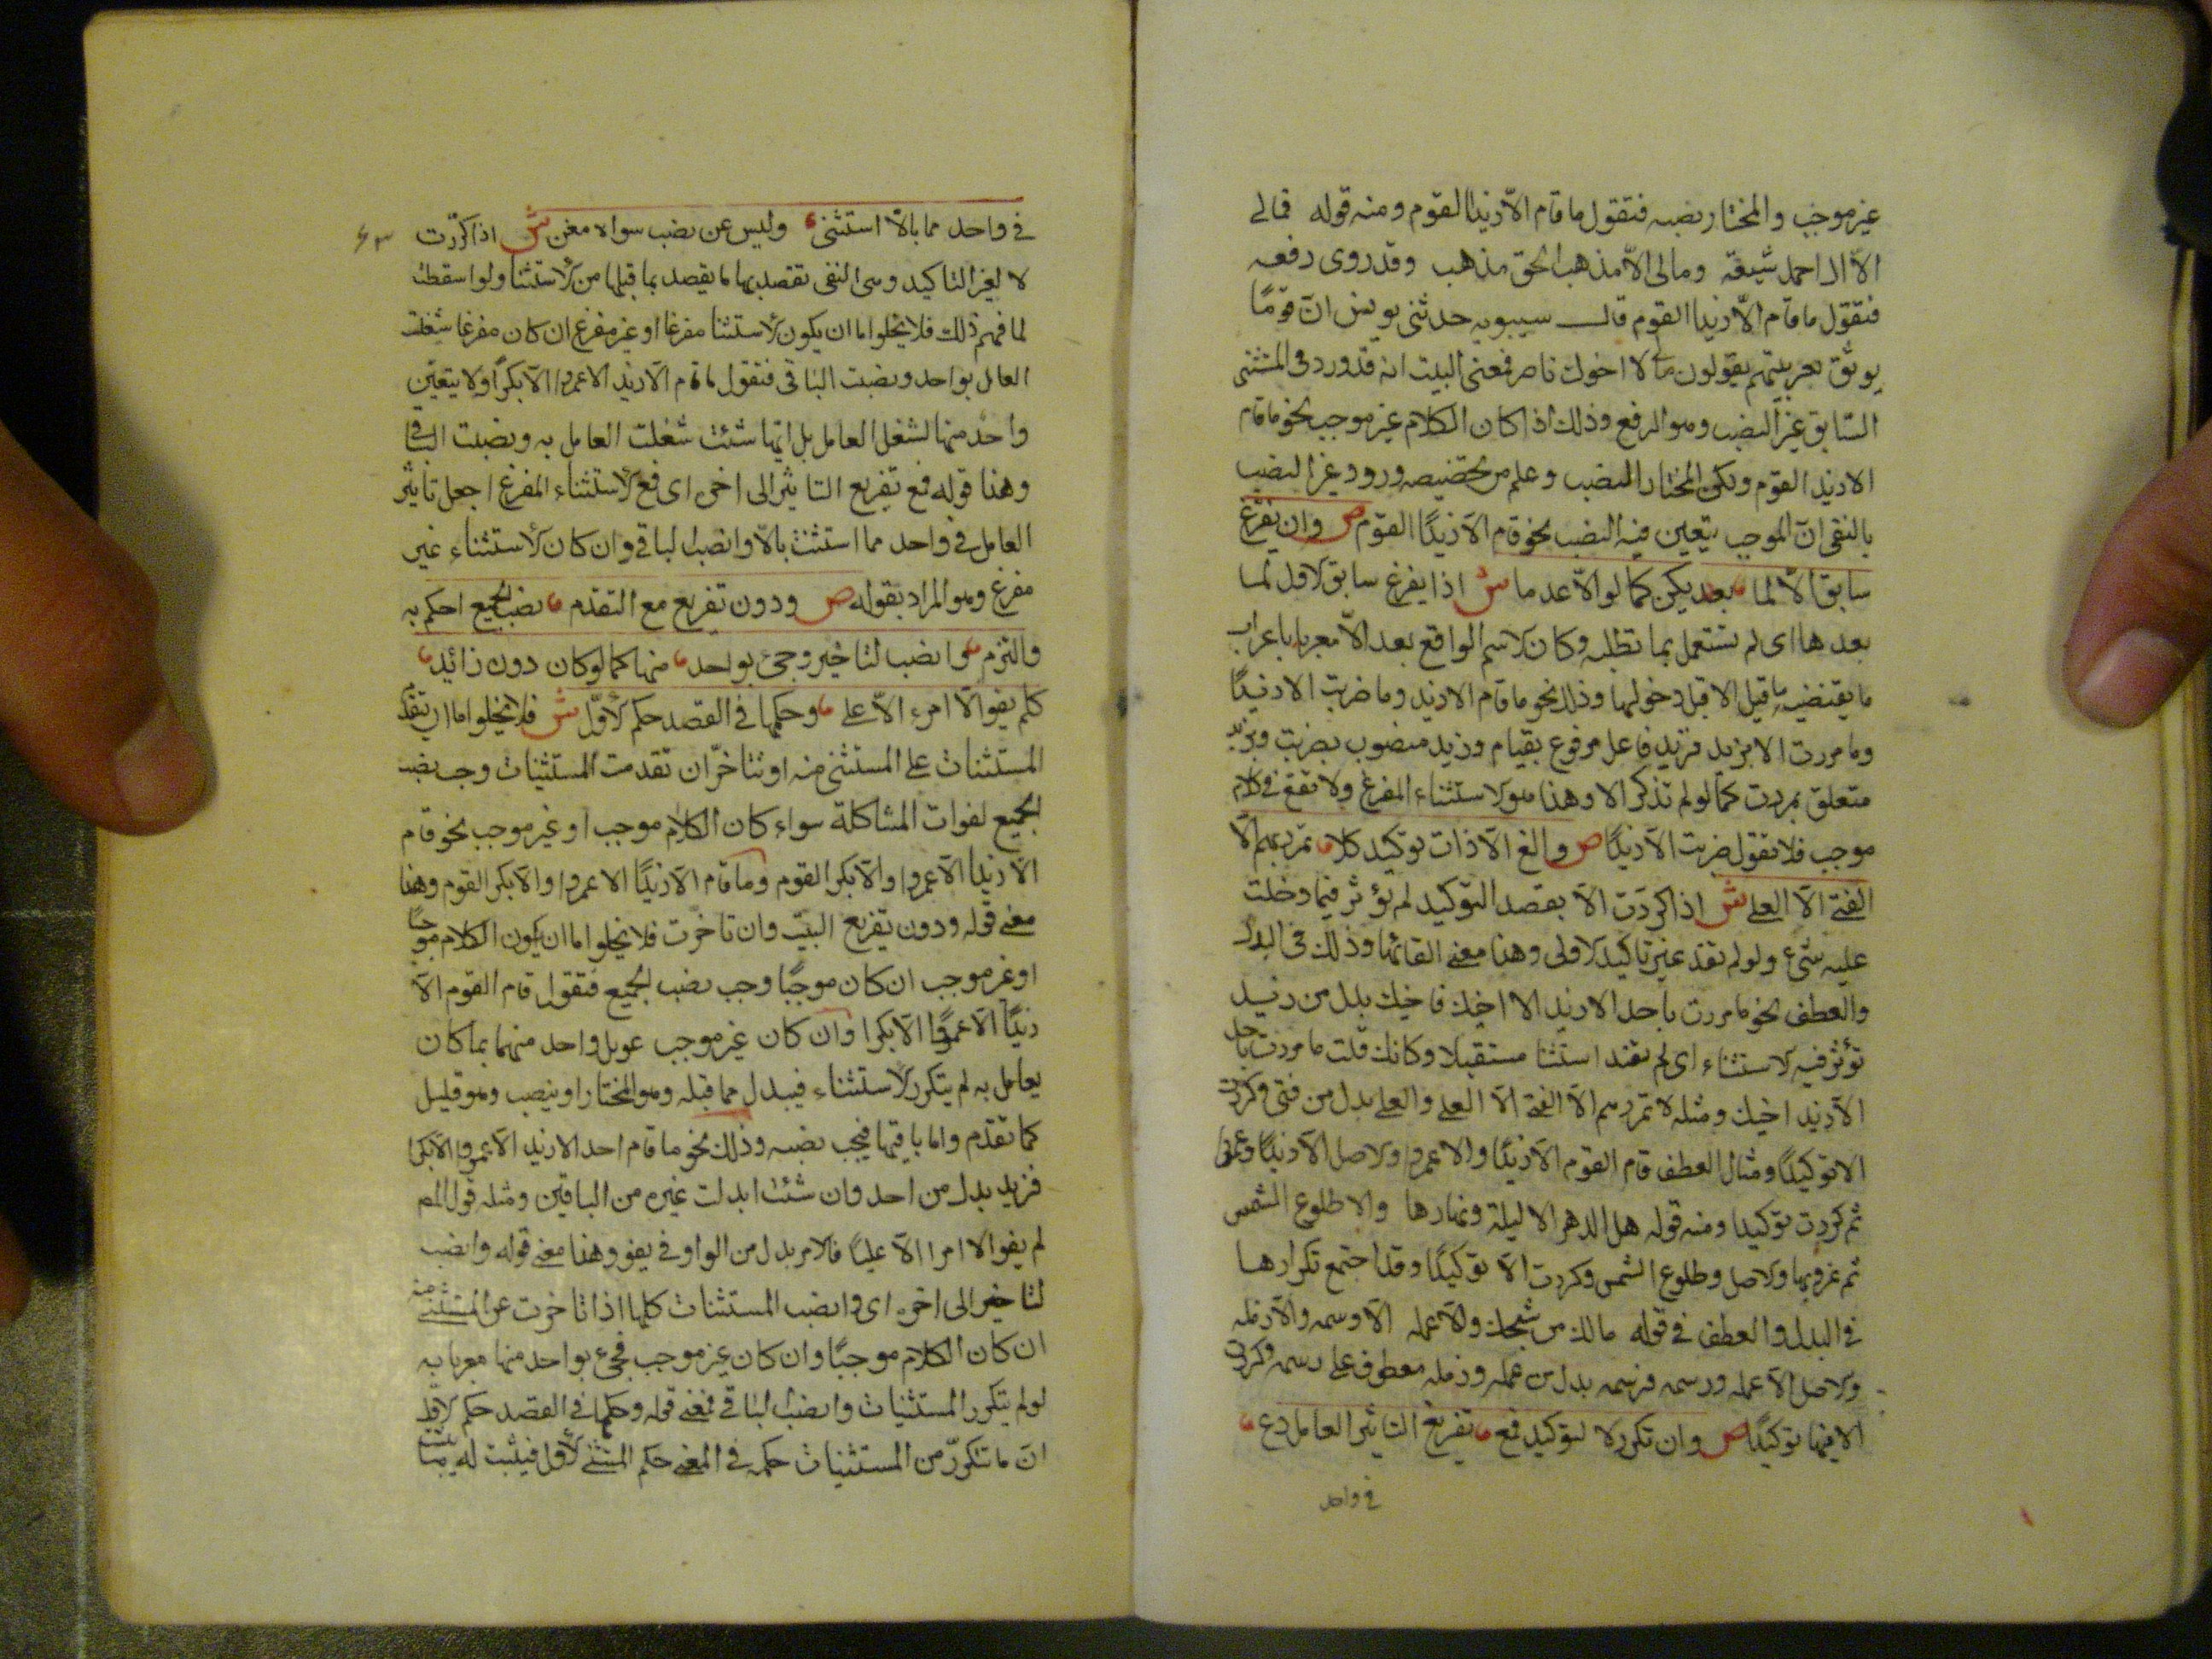 غير موجب والمختار نصبه فتقول ما قام الا زيدا القوم ومنه قوله فمالي
الا آل احمد شيعة ومالي الا مذهب الحق مذهب وقد روى رفعه
فتقول ما قام الا زيدا القوم قال سيبويه حدثني يونس ان قوما
يوثق بعربيتهم يقولون مالي الا اخوك ناصر فمعنى البيت انه قد ورد في المستثنى
السابق غير النصب وهو الرفع وذلك اذا كان الكلام غير موجب نحو ما قام
الا زيد القوم ولكن المختار النصب وعلم من تخصيصه ورود غير النصب
بالنفي ان الموجب يتعين فيه النصب نحو قام الا زيدًا القوم ص وان يفرغ
سابق الا لما بعد يكن كما لو الا عدما ش اذا يفرغ سابق لاقل لما
بعدها اى لم تشتغل بما تطلبه وكان الاسم الواقع بعد الا معربا باعراب
ما يقتضيه ما قبل الا قبل دخولها وذلك نحو ما قام الا زيد وما ضربت الا زيدًا
وما مررت الا بزيد فزيد فاعل مرفوع بقيام وزيد منصوب بضربت وبزيد
متعلق بمررت كما لو لم تذكر الا وهذا هو الاستثناء المفرغ ولا تقع في كلام
موجب فلا تقول ضربت الا زيدًا ص والغ الا ذات توكيد كلا تمرر بهم الا
الفتى الا العلى ش اذا كررت الا بقصد التوكيد لم تؤثر فيما دخلت
عليه شئ ولو لم تفد غير تاكيد الاولى وهذا معنى الغائها وذلك في البدل
والعطف نحو ما مررت باحد الا زيد الا اخيك فاخيك بدل من زيد
تؤثر فيه الاستثناء اى لم تفد استثنا مستقبلا وكانك قلت ما مررت باحد
الا زيد اخيك ومثله لا تمرر بهم الا الفتى الا العلى والعلى بدل من فتى وكررت
الا توكيدًا ومثال العطف قام القوم الا زيدًا والا عمروا والاصل الا زيدًا وعمروا
ثم كررت توكيدا ومنه قوله هل الدهر الا ليلة ونهارها والا طلوع الشمس
ثم غروبها والاصل وطلوع الشمس وكررت الا توكيدًا وقد اجتمع تكرارها
في البدل والعطف في قوله مالك من شيخك والا عمله الا رسيمه والا رمله
والاصل الا عمله ورسيمه فرسيمه بدل من عمله ورمله معطوف على رسيمه وكررت
الا فيهما توكيدًا ص وان تكرر لا لتوكيد فمع تفريغ التاثير العامل دع
في واحد
في واحد مما بالا استثنى وليس عن نصب سواه مغن ش اذا كررت
لا لغير التاكيد وهى التى تقصد بها ما يقصد بما قبلها من الاستثنا ولو اسقطت
لما فهم ذلك فلا يخلوا اما ان يكون الاستثنا مفرغا او غير مفرغ ان كان مفرغا شغلت
العامل بواحد ونصبت الباقي فتقول ما قام الا زيد الا عمروا الا بكرًا ولا يتعين
واحد منها لشغل العامل بل ايها شئت شغلت العامل به ونصبت الباقي
وهذا قوله فمع تفريع التاثير الى اخره اى فمع الاستثناء المفرغ اجعل تاثير
العامل في واحد مما استثنت بالا وانصب الباقي وان كان الاستثناء غير
مفرغ وهو المراد بقوله ص ودون تفريع مع التقدم نصب الجميع احكم به
والتزم وانصب لتاخير وجئ بواحد منها كما لو كان دون زائد
كلم يفوا الا امرء الا على وحكمها في القصد حكم الاول ش فلا يخلوا اما ان تتقدم
المستثنات على المستثنى منه او تتاخر ان تقدمت المستثنيات وجب نصب
الجميع لفوات المشاكلة سواء كان الكلام موجب او غير موجب نحو قام
الا زيدا الا عمروا والا بكر القوم وما قام الا زيدًا الا عمروا والا بكر القوم وهذا
معنى قوله ودون تفريع البيت وان تاخرت فلا يخلوا اما ان يكون الكلام موجبًا
او غير موجب ان كان موجبًا وجب نصب الجميع فتقول قام القوم الا
زيدًا الا عمروًا الا بكرا وان كان غير موجب عومل واحد منهما بما كان
يعامل به لم يتكرر الاستثناء فيبدل مما قبله وهو المختار او ينصب وهو قليل
كما تقدم واما باقيها فيجب نصبه وذلك نحو ما قام احد الا زيد الا عمروا الا بكرا
فزيد بدل من احد وان شئت ابدلت غيره من الباقين ومثله قول المص
لم يفوا الا امرا الا عليًا فالامر بدل من الواو في يفو وهذا معنى قوله وانصب
لتاخير الى اخره اى وانصب المستثنات كلها اذا تاخرت عن المستثنى منه
ان كان الكلام موجبًا وان كان غير موجب فجئ بواحد منها معربا به
لو لم يتكرر المستثنيات وانصب الباقي فمعنى قوله وحكمها في القصد حكم الاول
ان ما تتكرر من المستثنيات حكمه في المعنى حكم المستثنى الاول فيثبت له